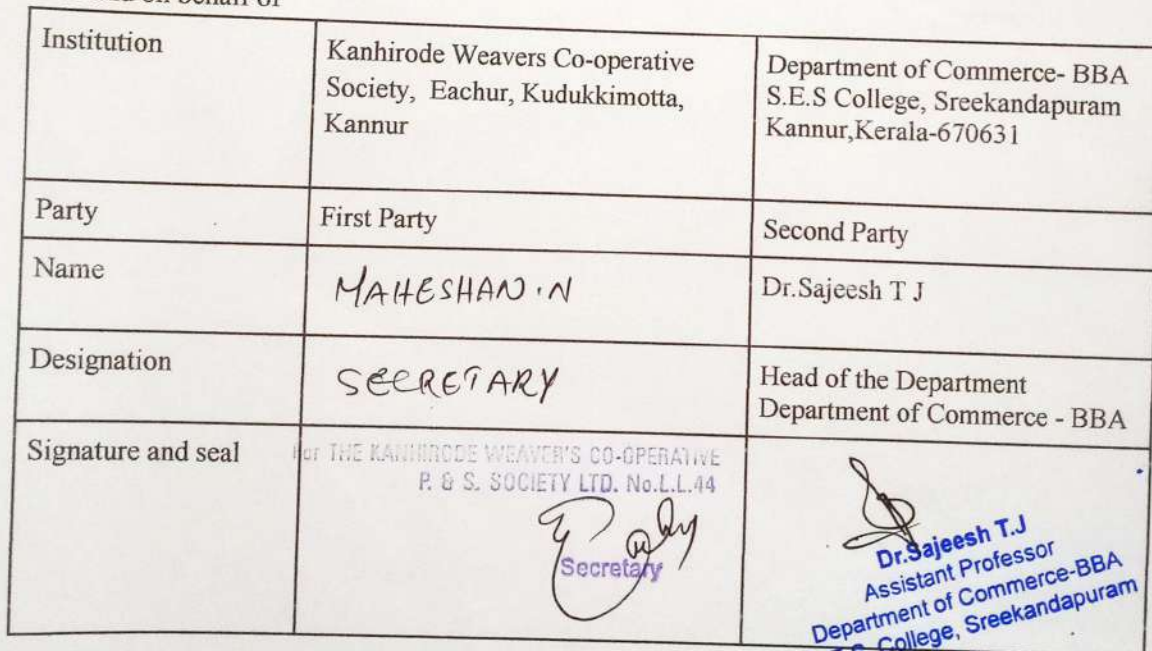 on behalf of
Institution
Kanhirode Weavers Co-operative
Society, Eachur, Kudukkimotta,
Kannur
Department of Commerce- BBA
S.E.S College, Sreekandapuram
Kannur,Kerala-670631
Party
First Party
Second Party
Name
MAHESHAN.N
Dr.Sajeesh T J
Designation
SECRETARY
Head of the Department
Department of Commerce - BBA
Signature and seal
For THE KANHIRODE WEAVER'S CO-OPERATIVE
P. & S. SOCIETY LTD. No.L.L.44
Secretary
Dr.Sajeesh T.J
Assistant Professor
Department of Commerce-BBA
College, Sreekandapuram